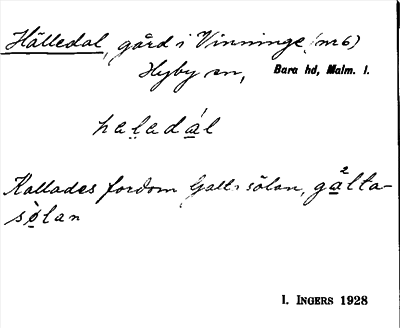 Hälledal, gård i Vinninge (nr 6)
Hyby sn, Bara hd, Malm. l.
haledál
Kallades fordom Galt-sölan, galta-
sölan
I. INGERS 1928